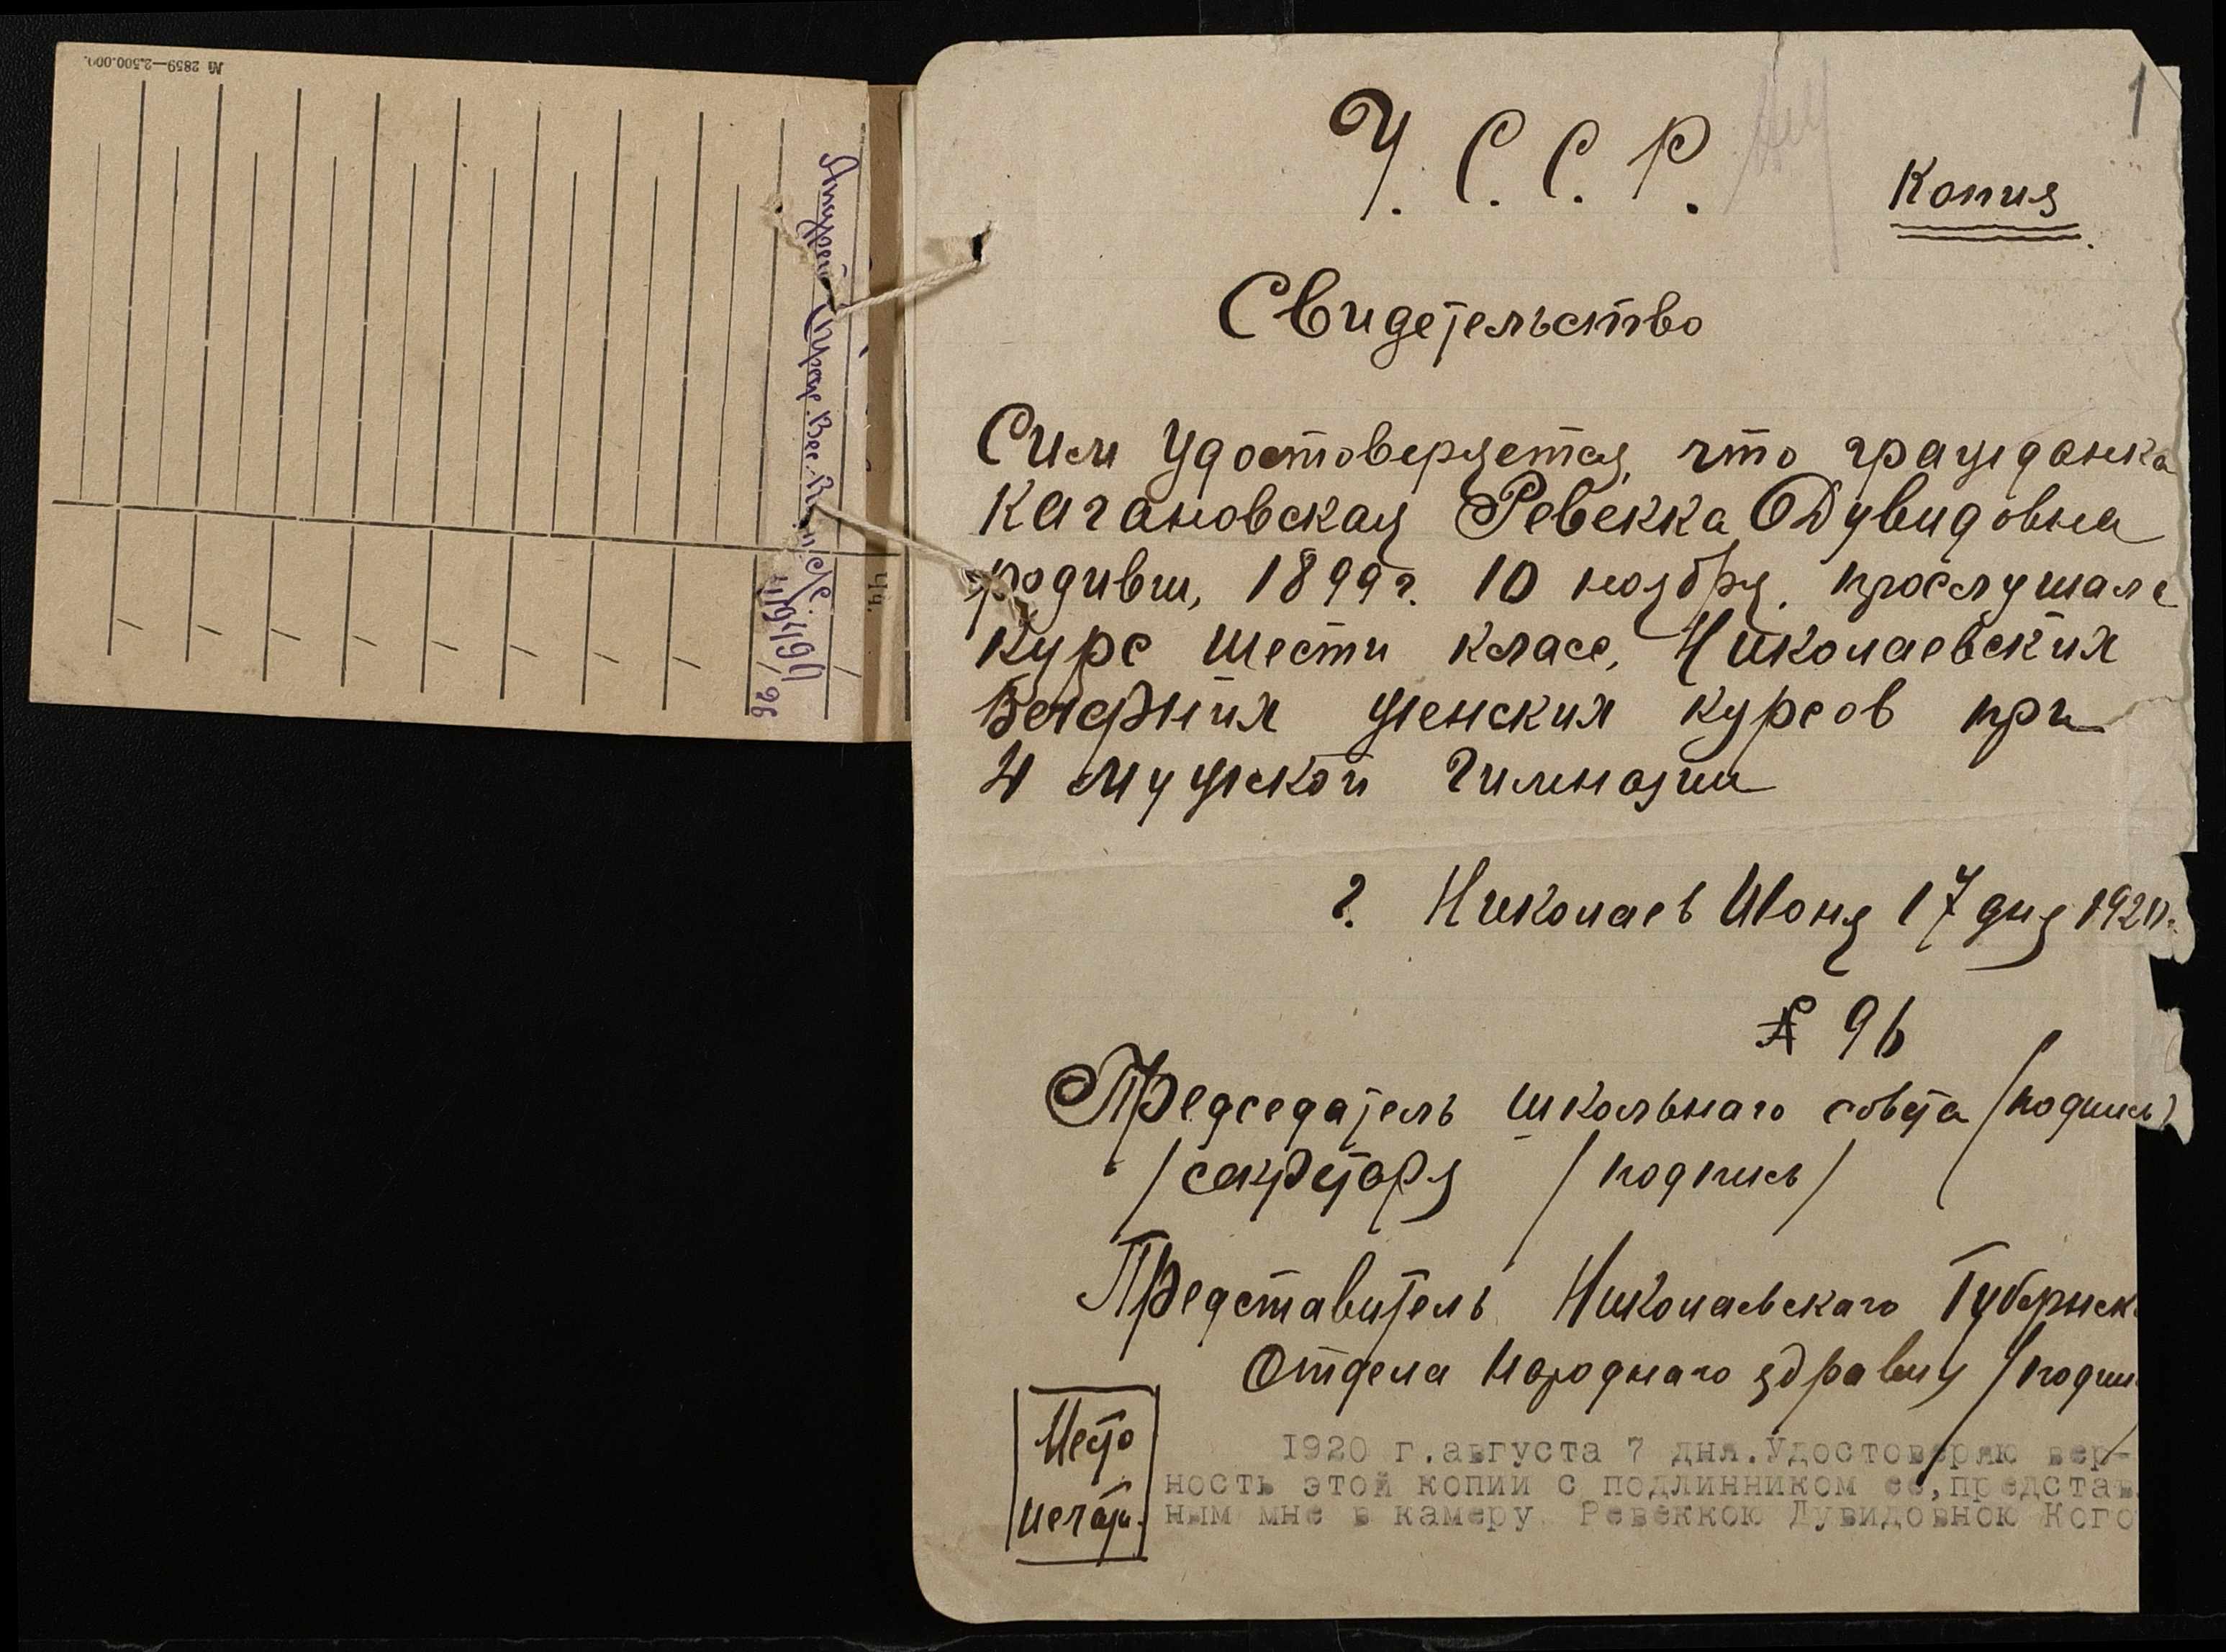 № 2859—2.500.000.
1
У. С. С. Р.
Копия
Свидетельство
Сим удостоверяется, что гражданка
Кагановская Ревекка Дувидовна
родивш, 1899 г. 10 ноября, прослушала
курс шести класс, Николаевских
Вечерних женских курсов при
4 мужской гимназии
г. Николаев Июня 17 дня 1920г.
№ 96
Председатель школьнаго совета /подпись/
/секретаря /подпись/
Представитель Николаевскаго Губернск
Отдела Народнаго здравия /подпи
Место
печати.
1920 г.августа 7 дня.Удостоверяю вер-
ность этой копии с подлинником ее,представ
ным мне в камеру Ревеккою Дувидовною Кого